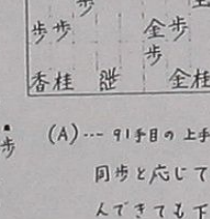 歩
歩歩 金歩
歩
香桂 金桂
歩
(A)… 91手目の上手
同歩と応じて
んできても下